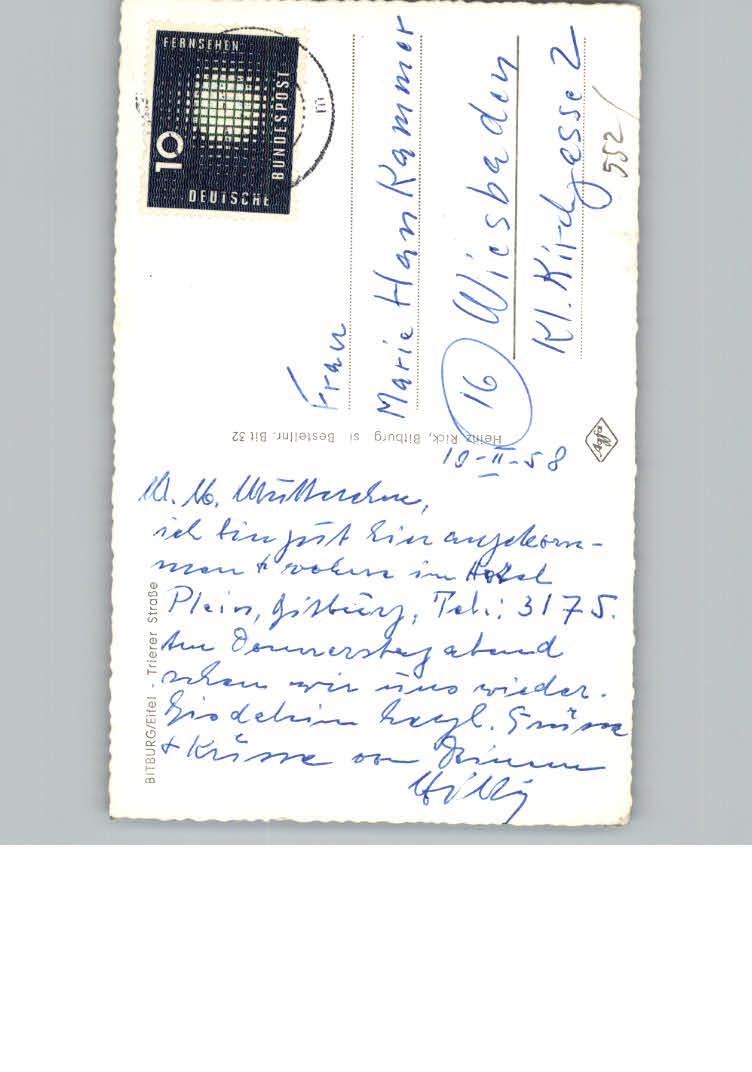 FERNSEHEN
10
DEUTSCHE
BUNDESPOST
Frau
Marie Hankammer
16 Wiesbaden
Kl. Kirchgasse 2
552
Heinz Rick, Bitburg si Bestellnr. Bit 32
Agfa
BITBURG/Eifel - Trierer Straße
19-II-58
M. lb. Mütterchen,
ich bin gut hier angekom-
men + wohne im Hotel
Plein, Bitburg, Tel.: 3175.
Am Donnerstag abend
sehen wir uns wieder.
Bis dahin herzl. Grüsse
+ Küsse von Deinem
Willy